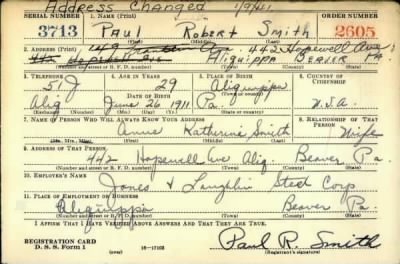 Address Changed 1/9/41.
SERIAL NUMBER 1. NAME (Print) ORDER NUMBER
3713 Paul Robert Smith 2605
(First) (Middle) (Last)
2. ADDRESS (Print) 442 Hopewell Ave.
Aliquippa Beaver Pa.
(Number and street or R. F. D. number) (Town) (County) (State)
3. TELEPHONE 4. AGE IN YEARS 5. PLACE OF BIRTH 6. COUNTRY OF CITIZENSHIP
5. J 29 Aliquippa
DATE OF BIRTH (Town or county)
Aliq June 26 1911 Pa. U.S.A.
(Exchange) (Number) (Mo.) (Day) (Yr.) (State or country)
7. NAME OF PERSON WHO WILL ALWAYS KNOW YOUR ADDRESS 8. RELATIONSHIP OF THAT PERSON
Anna Katherine Smith Wife
(Mr., Mrs., Miss) (First) (Middle) (Last)
9. ADDRESS OF THAT PERSON
442 Hopewell Ave Aliq. Beaver Pa.
(Number and street or R. F. D. number) (Town) (County) (State)
10. EMPLOYER'S NAME
Jones & Laughlin Steel Corp
11. PLACE OF EMPLOYMENT OR BUSINESS
Aliquippa Beaver Pa.
(Number and street or R. F. D. number) (Town) (County) (State)
I AFFIRM THAT I HAVE VERIFIED ABOVE ANSWERS AND THAT THEY ARE TRUE.
REGISTRATION CARD
D. S. S. Form 1 16-17105 Paul R. Smith
(Registrant's signature)